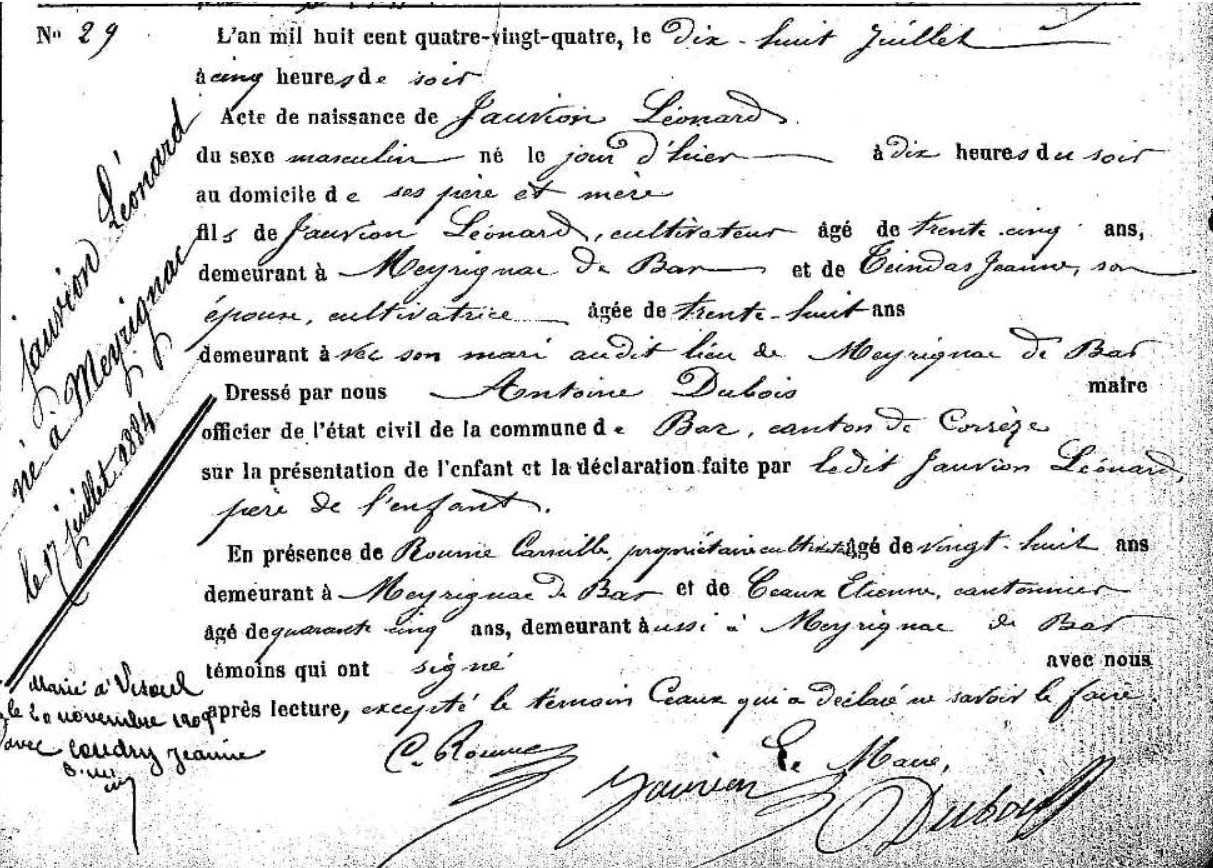 No 29
L'an mil huit cent quatre-vingt-quatre, le Dix-huit Juillet
à cinq heures de soir
Acte de naissance de Jauvion Léonard.
du sexe masculin né le jour d'hier à dix heures du soir
au domicile de ses père et mère
fils de Jauvion Léonard, cultivateur âgé de trente-cinq ans,
demeurant à Meyrignac de Bar et de Ceindas Jeanne, son
épouse, cultivatrice âgée de trente-huit ans
demeurant avec son mari audit lieu de Meyrignac de Bar
Dressé par nous Antoine Dubois maire
officier de l'état civil de la commune de Bar, canton de Corrèze
sur la présentation de l'enfant et la déclaration faite par ledit Jauvion Léonard,
père de l'enfant.
En présence de Roume Camille, propriétaire cultivateur âgé de vingt-huit ans
demeurant à Meyrignac de Bar et de Ceaux Etienne, cantonnier
âgé de quarante cinq ans, demeurant aussi à Meyrignac de Bar
témoins qui ont signé avec nous
après lecture, excepté le témoin Ceaux qui a déclaré ne savoir le faire.
C. Roume
Jauvion
Le Maire,
Dubois
Jauvion Léonard
né à Meyrignac
le 17 juillet 1884
Marié à Vesoul
le 20 novembre 1909
avec Coudry Jeanne